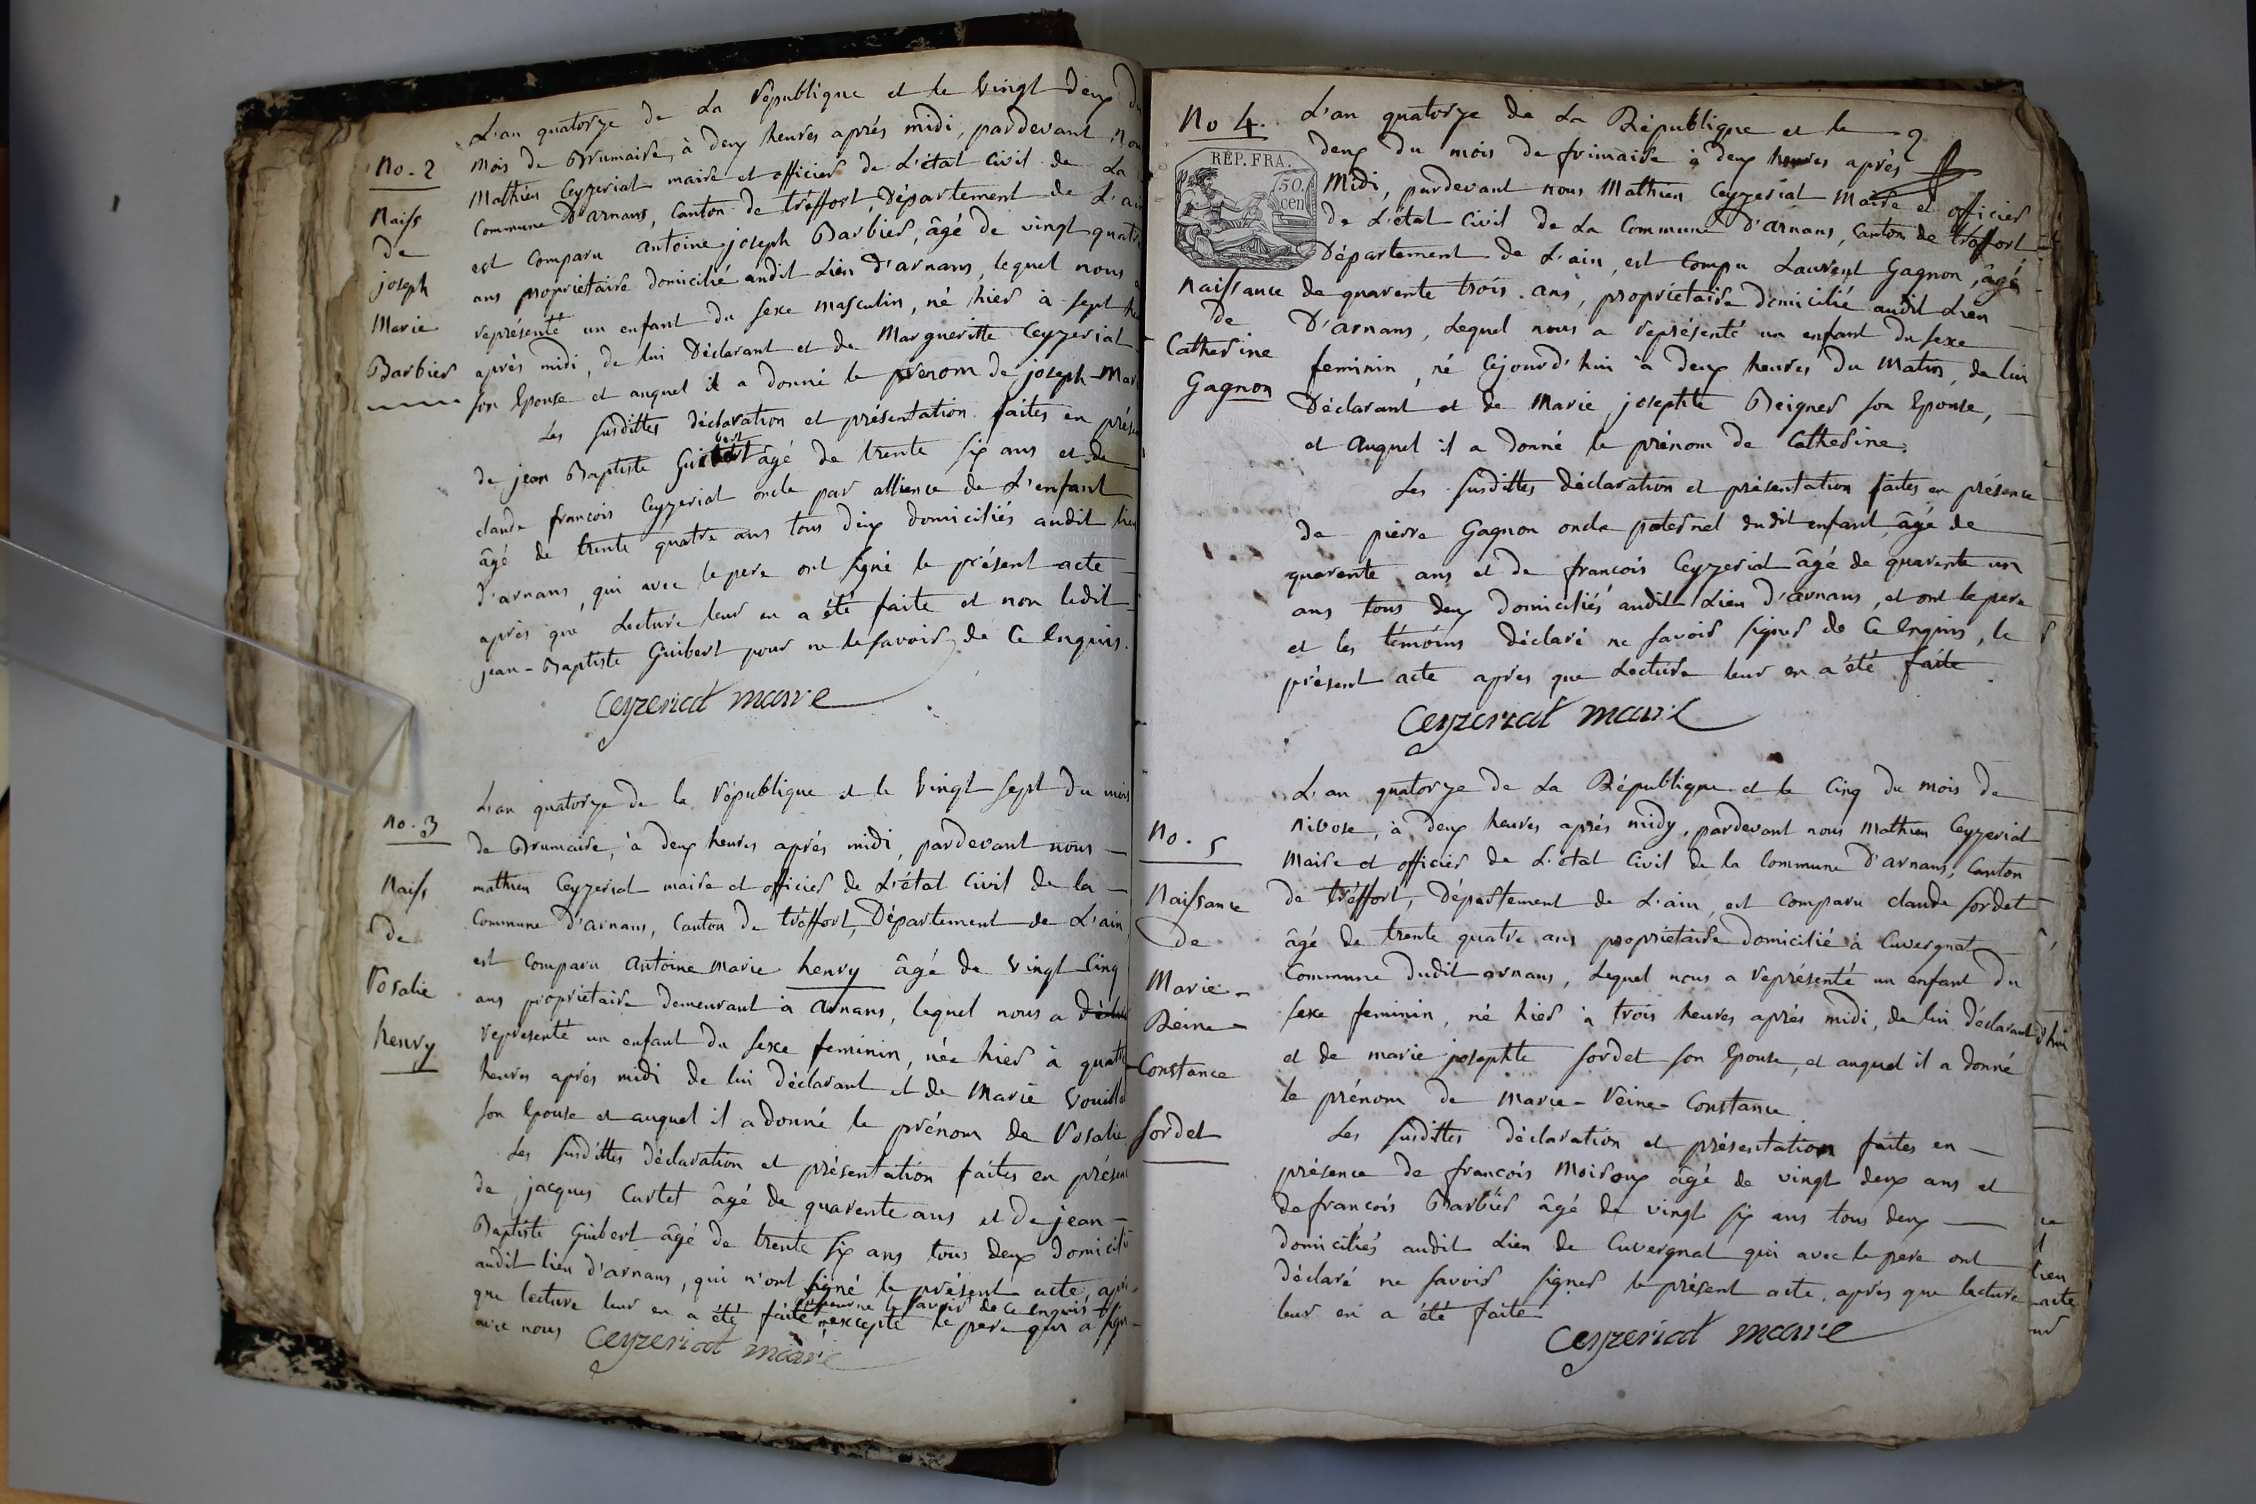 No. 2
Naiss
de
joseph
Marie
Barbier
L'an quatorze de La République et le vingt deux du
mois de Brumaire, à deux heures après midi, pardevant nou
Mathieu Ceyzeriat maire et officier de L'état Civil de La
Commune D'arnans, Canton de tréffort, Département de L'ain
est Comparu antoine joseph Barbier, âgé de vingt quatre
ans propriétaire domicilié audit Lieu d'arnans, lequel nous
représenté un enfant du sexe masculin, né hier à sept he
après midi, de lui Déclarant et de Margueritte Ceyzeriat
son Epouse et auquel il a donné le prenom de joseph Mar
Les susdittes déclaration et présentation faites en prése
de jean Baptiste Guibert âgé de trente six ans et de
claude francois Ceyzeriat oncle par allience de L'enfant
âgé de trente quatre ans tous deux domiciliés audit lieu
d'arnans, qui avec le pere ont signé le présent acte
après que Lecture leur en a été faite et non ledit
jean-Baptiste Guibert pour ne le savoir, de Ce Enquis.
Ceyzeriat maire
No. 3
Naiss
de
Rosalie
henry
L'an quatorze de la République et le vingt sept du mois
de Brumaire, à deux heures après midi, pardevant nous
mathieu Ceyzeriat maire et officier de L'état Civil de la
Commune D'arnans, Canton de tréffort, Département de L'ain
est Comparu Antoine Marie henry âgé de vingt Cinq
ans propriétaire demeurant à Arnans, lequel nous a
représenté un enfant du sexe feminin, née hier à quatre
heures après midi de lui Déclarant et de Marie
son Epouse et auquel il a donné le prénom de Rosalie
Les susdittes déclaration et présentation faites en présen
de jacques Curtet âgé de quarente ans et de jean
Baptiste Guibert âgé de trente six ans tous deux Domicilié
audit lieu d'arnans, qui n'ont signé le présent acte après
pour ne le savoir de Ce enquis
que lecture leur en a été faite excepté le pere qui a signé
avec nous Ceyzeriat maire
No 4.
REP. FRA.
50.
cen
Naissance
de
Catherine
Gagnon
L'an quatorze de La République et le
deux du mois de frimaire à deux heures après
Midi, pardevant nous Mathieu Ceyzeriat Maire et officier
de L'état Civil de La Commune D'arnans, Canton de tréffort
Département de L'ain, est Compu Laurent Gagnon, âgé
de quarente trois ans, propriétaire domicilié audit Lieu
D'arnans, Lequel nous a représenté un enfant du sexe
feminin, né Cejourd'hui à deux heures Du Matin, de lui
Déclarant et de Marie josephte Beigner son Epouse,
et auquel il a donné le prénom de Catherine.
Les susdittes déclaration et présentation faites en présence
de pierre Gagnon oncle paternel dudit enfant, âgé de
quarente ans et de francois Ceyzeriat âgé de quarente un
ans tous deux Domiciliés audit Lieu D'arnans, et ont le pere
et les témoins Déclaré ne savoir signer de Ce Enquis, le
présent acte après que Lecture leur en a été faite
Ceyzeriat maire
No. 5
Naissance
de
Marie-
Reine-
Constance
Sordet
L'an quatorze de La République et le Cinq du mois de
Nivose, à deux heures après midy, pardevant nous Mathieu Ceyzeriat
Maire et officier de L'état Civil de la Commune D'arnans, Canton
de tréffort, Département de L'ain, est Comparu claude Sordet
âgé de trente quatre ans propriétaire domicilié à Cuvergnat
Commune dudit arnans, Lequel nous a représenté un enfant du
sexe feminin, né hier à trois heures après midi, de lui déclarant
et de marie josephte Sordet son Epouse, et auquel il a donné
le prénom de Marie-Reine-Constance
Les susdittes déclaration et présentation faites en
présence de francois Moiroux âgé de vingt deux ans et
de francois Barbier âgé de vingt six ans tous deux
domiciliés audit Lieu de Cuvergnat qui avec le pere ont
déclaré ne savoir signer le présent acte, après que lecture
leur en a été faite
Ceyzeriat maire